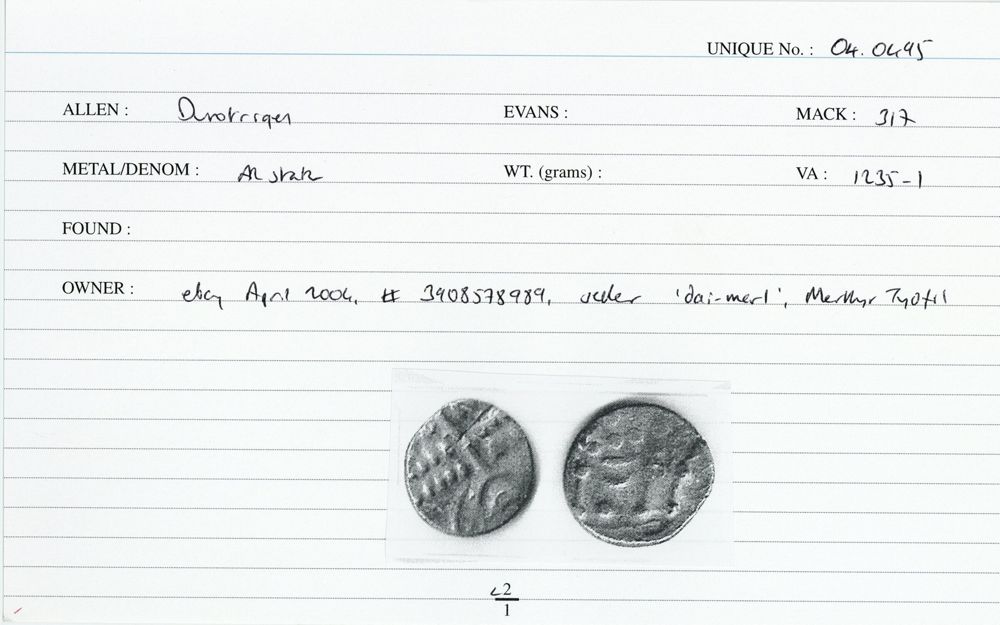 UNIQUE No. : 04.0495
ALLEN : Durotriges EVANS : MACK : 317
METAL/DENOM : AR stater WT. (grams) : VA : 1235-1
FOUND :
OWNER : ebay April 2004, # 3908578989, seller 'dai-merl', Merthyr Tydfil
c2
1